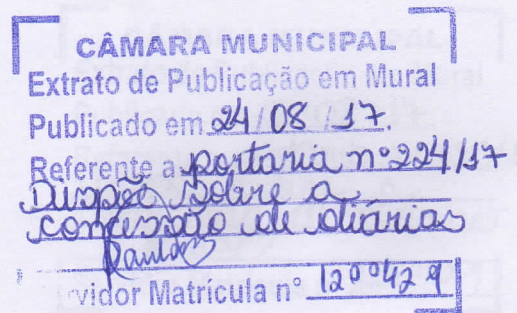 CÂMARA MUNICIPAL
Extrato de Publicação em Mural
Publicado em 24/08/17.
Referente a portaria nº 224/17
Dispõe sobre a
concessão de diárias
vidor Matrícula nº